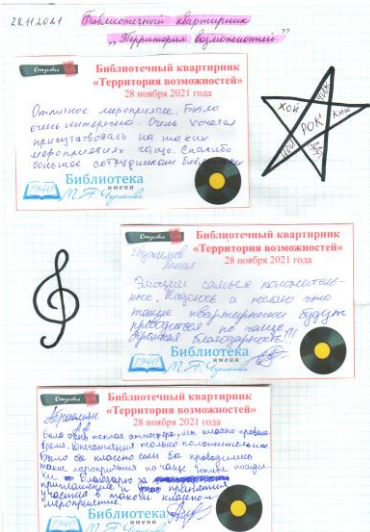 28.11.2021 Библиотечный квартирник
"Территория возможностей"
Библиотечный квартирник
«Территория возможностей»
28 ноября 2021 года
Отличное мероприятие. Было
очень интересно. Очень хочется
присутствовать на таких
мероприятиях чаще. Спасибо
большое сотрудникам
1940
Библиотека
имени
ХОЙ
РОК
Библиотечный квартирник
«Территория возможностей»
28 ноября 2021 года
Эмоции самые положитель-
ные. Надеюсь и желаю что
такие квартирники будут
проводиться по чаще.
Огромная благодарность!!!
1940
Библиотека
имени
Библиотечный квартирник
«Территория возможностей»
28 ноября 2021 года
Было очень теплая атмосфера, классно провели
время. Впечатления только положительные
Было бы классно если бы проводились
такие мероприятия по чаще.
Благодарю за
приглашение принятия
участия в таком классном
мероприятие.
1940
Библиотека
имени